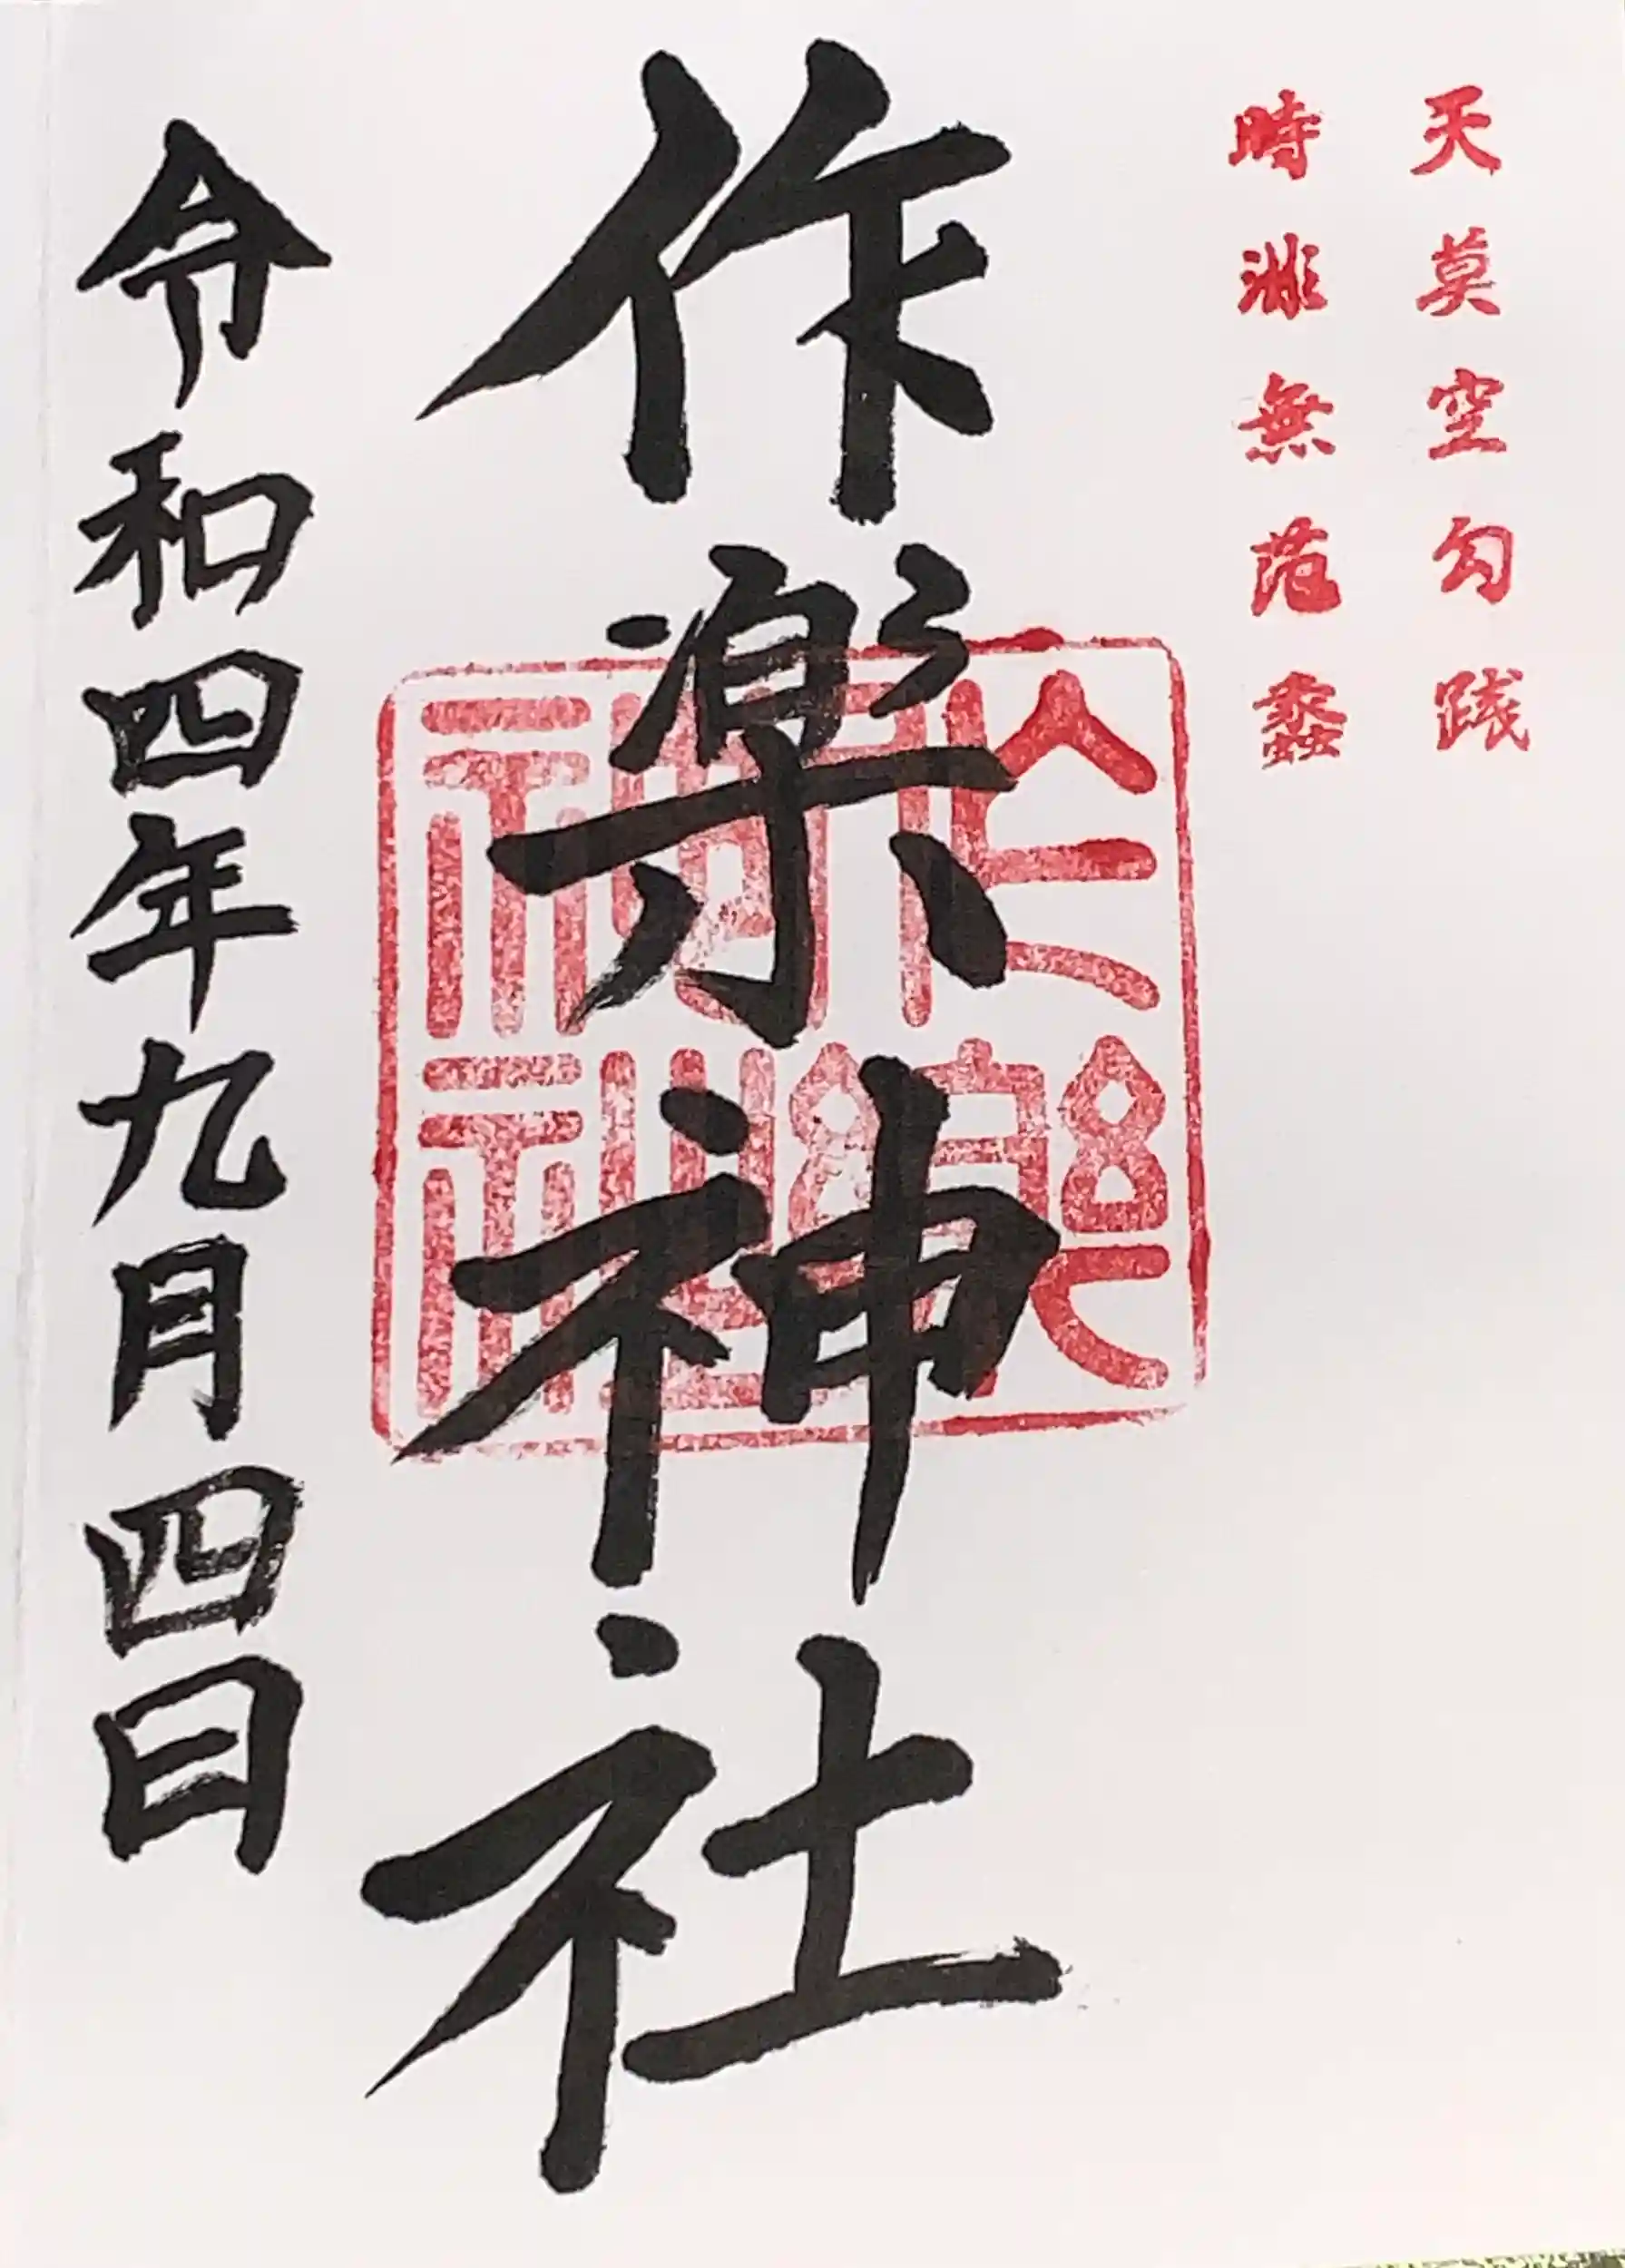 天莫空勾践
時非無范蠡
作楽神社
作樂
神社
令和四年九月四日